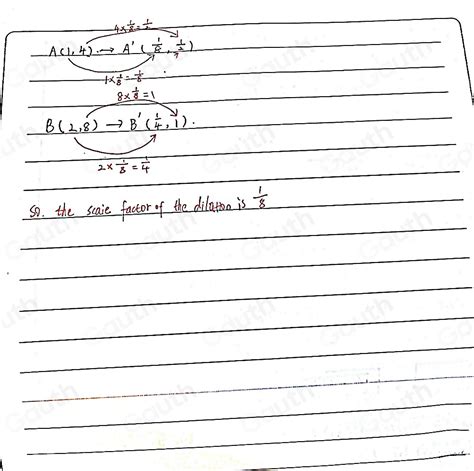 4×1/8=1/2
A(1,4) → A'(1/8, 1/2)
1×1/8=1/8
8×1/8=1
B(2,8) → B'(1/4, 1).
2×1/8=1/4
so. the scale factor of the dilation is 1/8
Gauth